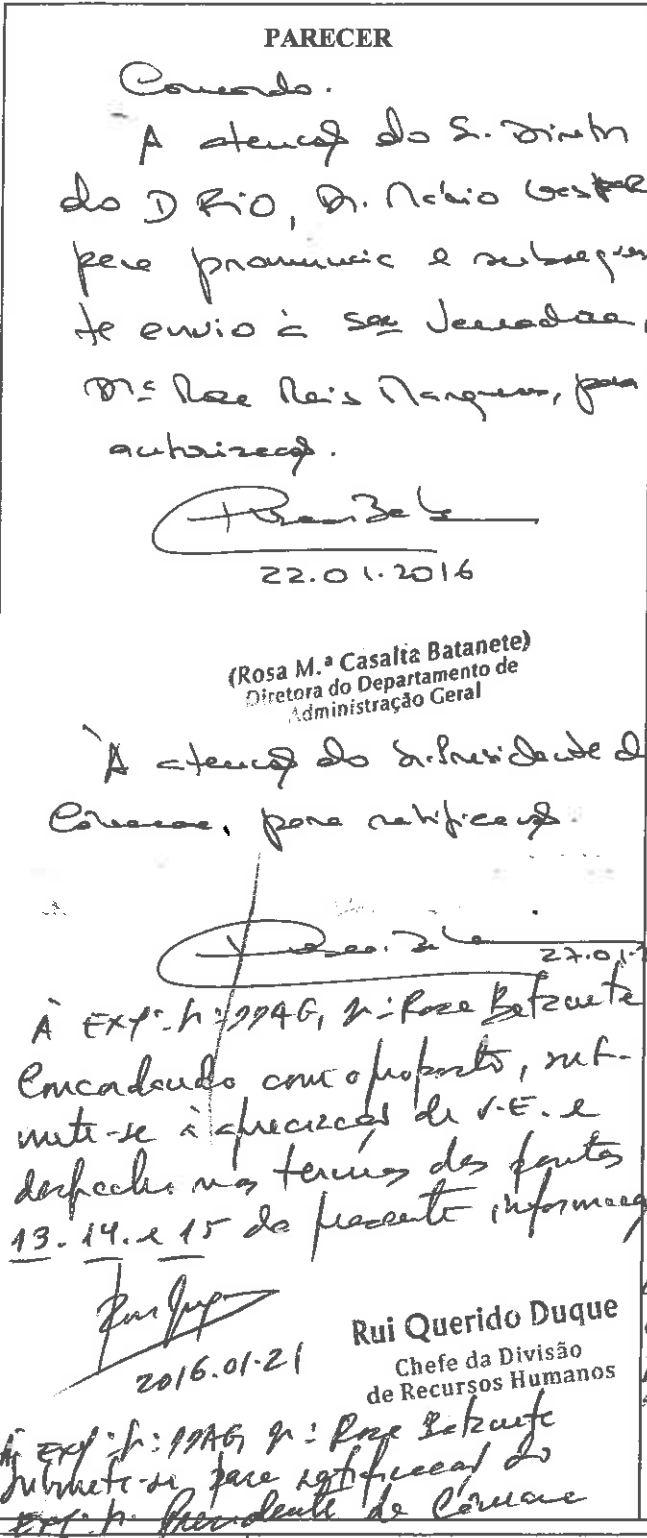 PARECER
Concordo.
À atenção do Sr. Diretor
do DRIO, Dr. Mário Gaspar
para pronúncia e subsequen
te envio à Srª Vereadora,
Drª Rosa Reis Marques, para
autorização.
22.01.2016
(Rosa M.ª Casalta Batanete)
Diretora do Departamento de
Administração Geral
À atenção do Sr. Presidente d
Câmara, para ratificação.
27.01.
À Exmª. Srª. DDAG, Drª. Rosa Batanete
Concordando com o proposto, sub-
mete-se à apreciação de V.E. e
despacho nos termos dos pontos
13. 14. e 15 da presente informaç
2016.01.21
Rui Querido Duque
Chefe da Divisão
de Recursos Humanos
À Exmª. Srª. DDAG, Drª. Rosa Batanete
Submete-se para ratificação do
Exmº. Sr. Presidente da Câmara